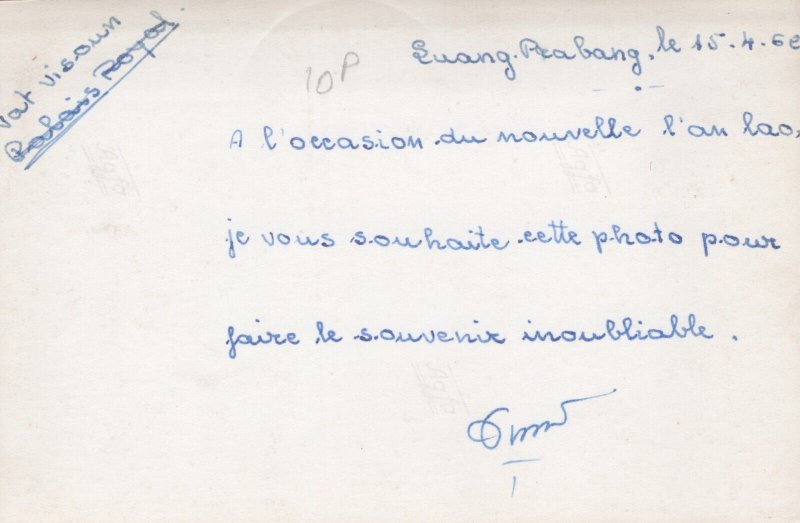 Vat visoun
Palais Royal.
10 P
Luang-Prabang, le 15.4.62
A l'occasion du nouvelle l'an lao,
je vous souhaite cette photo pour
faire le souvenir inoubliable.